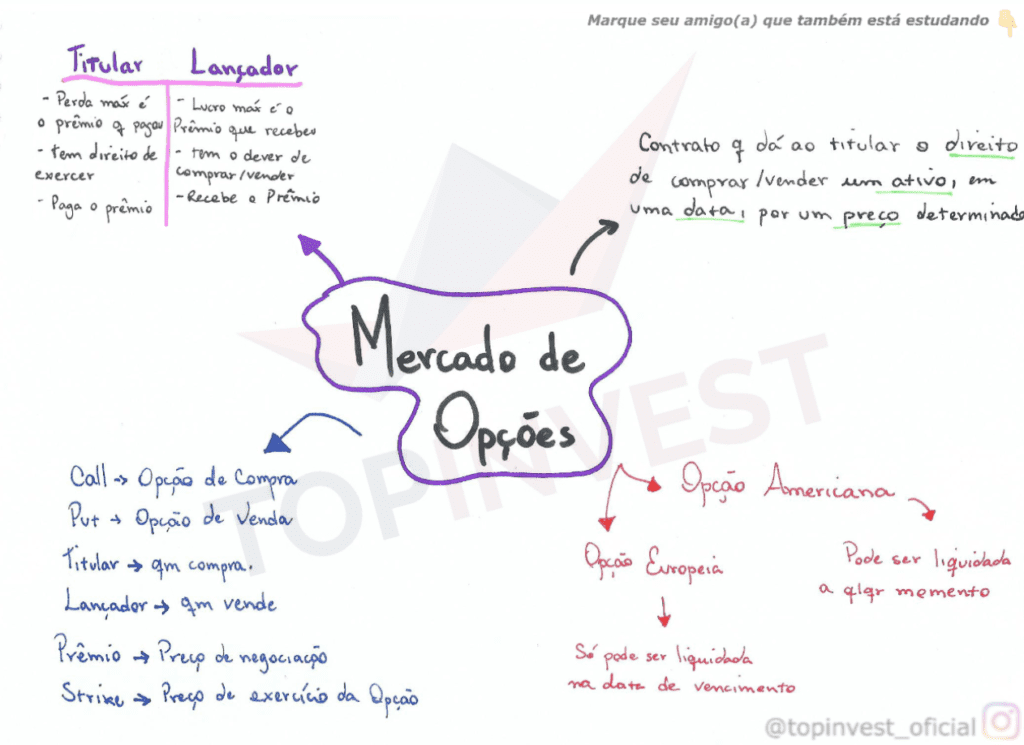 Marque seu amigo(a) que também está estudando 👇
Titular
- Perda máx é
o prêmio q pagou
- tem direito de
exercer
- Paga o prêmio
Lançador
- Lucro máx é o
Prêmio que recebeu
- tem o dever de
comprar/vender
- Recebe o Prêmio
Contrato q dá ao titular o direito
de comprar/vender um ativo, em
uma data, por um preço determinado
Mercado de
Opções
Call → Opção de Compra
Put → Opção de Venda
Titular → qm compra.
Lançador → qm vende
Prêmio → Preço de negociação
Strike → Preço de exercício da Opção
Opção Americana
Pode ser liquidada
a qlqr momento
Opção Europeia
Só pode ser liquidada
na data de vencimento
TOPINVEST
@topinvest_oficial